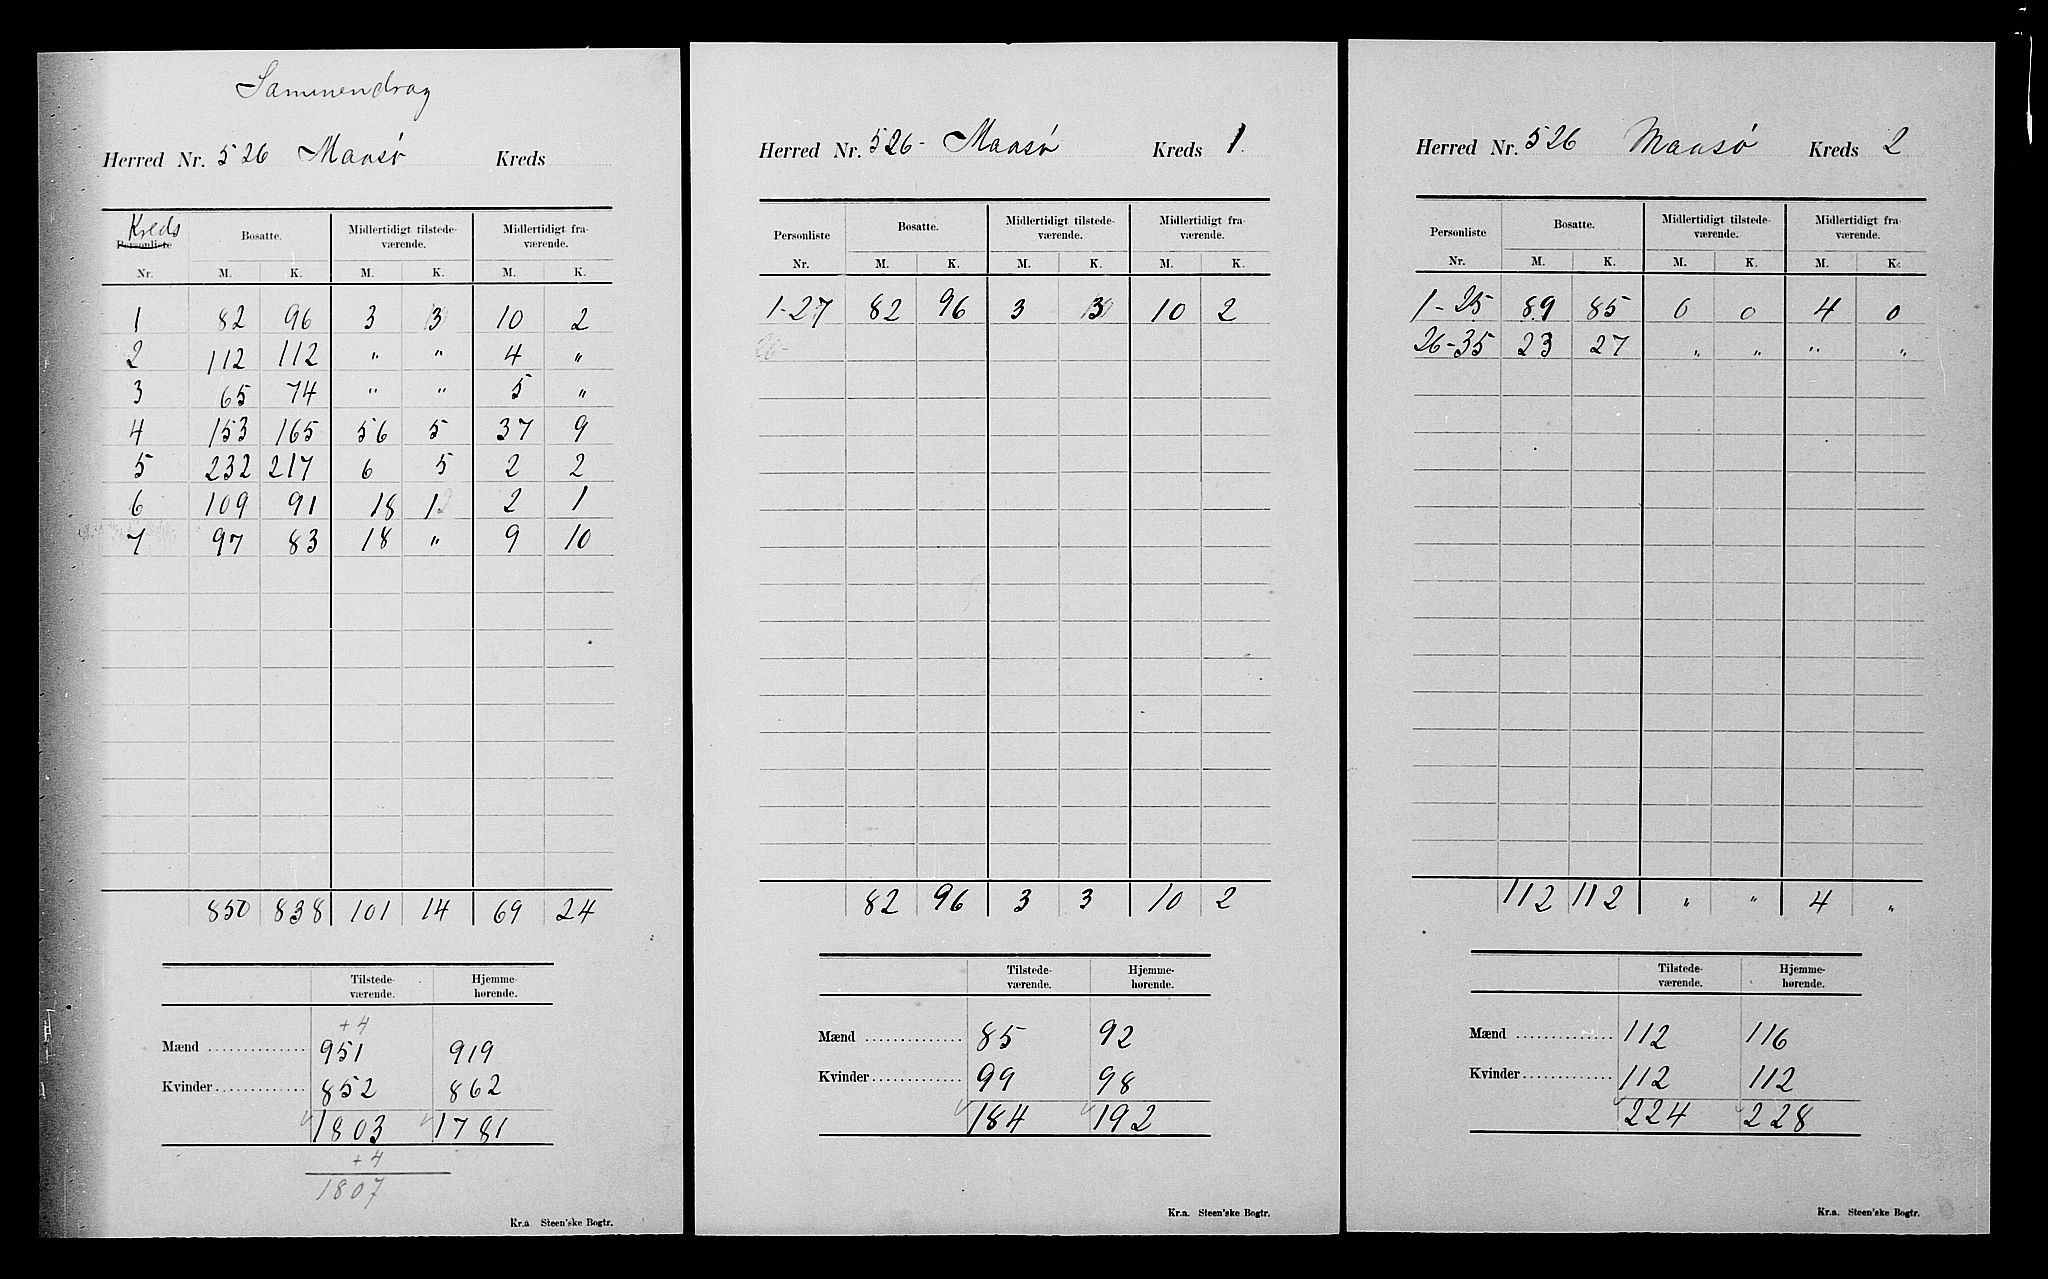 Sammendrag
Herred Nr. 526 Maasø Kreds
Kreds
Personliste Bosatte. Midlertidigt tilstede- Midlertidigt fra-
værende. værende.
Nr. M. K. M. K. M. K.
1 82 96 3 3 10 2
2 112 112 " " 4 "
3 65 74 " " 5 "
4 153 165 56 5 37 9
5 232 217 6 5 2 2
6 109 91 18 1 2 1
7 97 83 18 " 9 10
850 838 101 14 69 24
Tilstede- Hjemme-
værende. hørende.
+4
Mænd 951 919
Kvinder 852 862
1803 1781
+4
1807
Kr.a Steen'ske Bogtr.
Herred Nr. 526- Maasø Kreds 1.
Personliste Bosatte. Midlertidigt tilstede- Midlertidigt fra-
værende. værende.
Nr. M. K. M. K. M. K.
1-27 82 96 3 3 10 2
26-
82 96 3 3 10 2
Tilstede- Hjemme-
værende. hørende.
Mænd 85 92
Kvinder 99 98
184 192
Kr.a. Steen'ske Bogtr.
Herred Nr. 526 Maasø Kreds 2
Personliste Bosatte. Midlertidigt tilstede- Midlertidigt fra-
værende. værende.
Nr. M. K. M. K. M. K.
1-25 89 85 0 0 4 0
26-35 23 27 " " " "
112 112 " " 4 "
Tilstede- Hjemme-
værende. hørende.
Mænd 112 116
Kvinder 112 112
224 228
Kr.a. Steen'ske Bogtr.